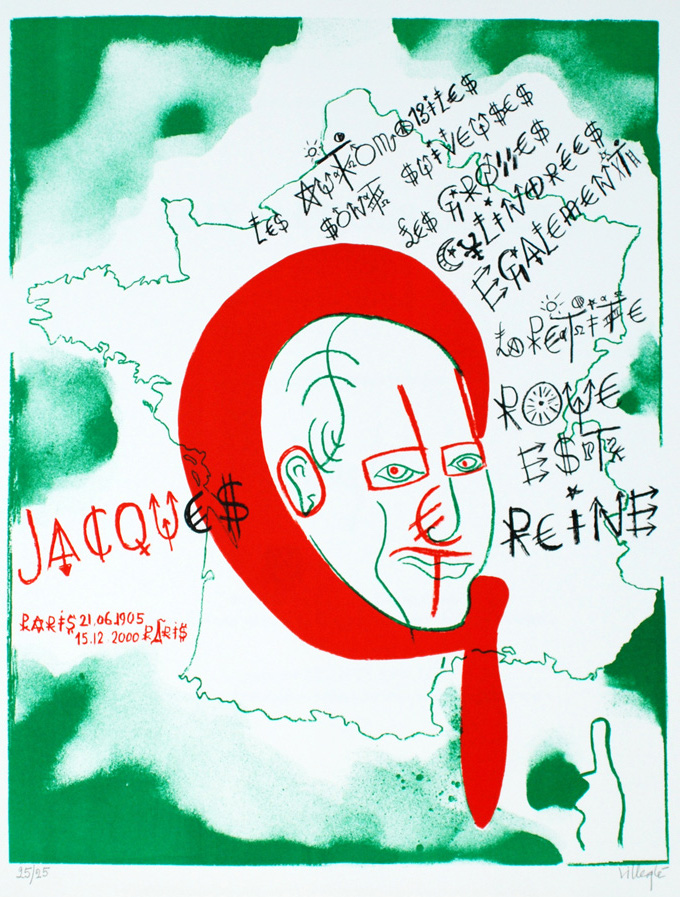 LES AUTOMOBILES
SONT SUIVEUSES
LES GROSSES
CYLINDRÉES
ÉGALEMENT
LA PETITE
ROUE
EST
REINE
JACQUES
PARIS 21.06.1905
15.12 2000 PARIS
25/25
Villeglé